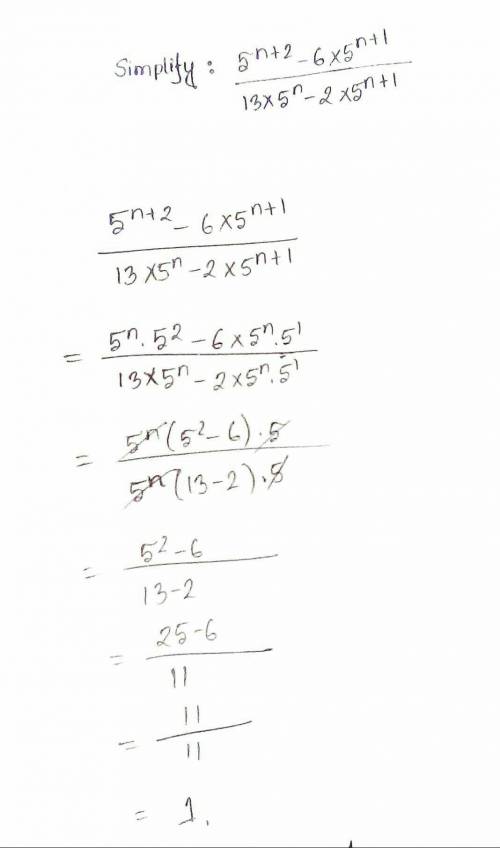 Simplify: \frac{5^{n+2} - 6 \times 5^{n+1}}{13 \times 5^n - 2 \times 5^{n+1}}
\frac{5^{n+2} - 6 \times 5^{n+1}}{13 \times 5^n - 2 \times 5^{n+1}}
= \frac{5^n . 5^2 - 6 \times 5^n . 5^1}{13 \times 5^n - 2 \times 5^n . 5^1}
= \frac{5^n (5^2 - 6) . 5}{5^n (13 - 2) . 5}
= \frac{5^2 - 6}{13 - 2}
= \frac{25 - 6}{11}
= \frac{11}{11}
= 1.